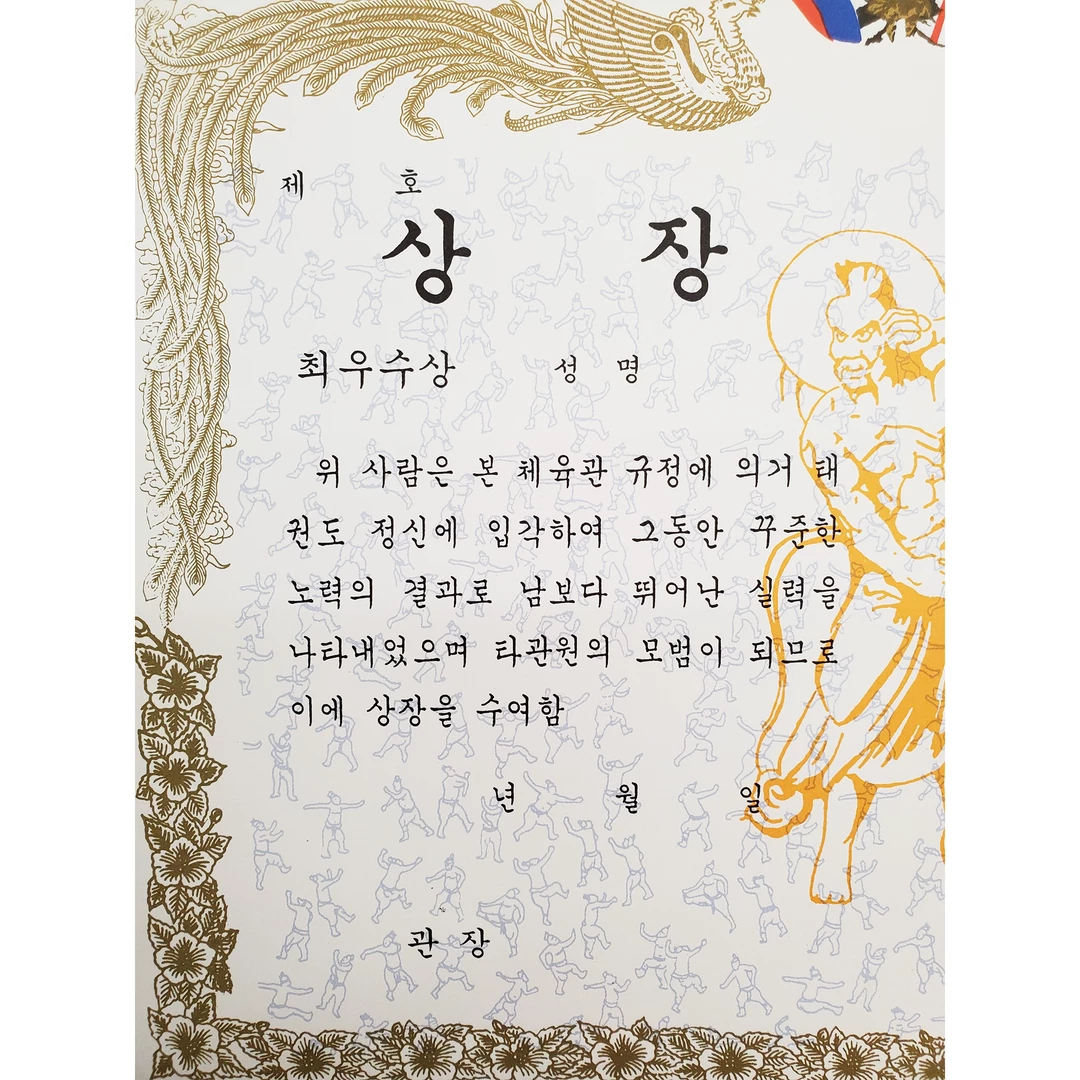 제 호
상 장
최우수상 성 명
위 사람은 본 체육관 규정에 의거 태
권도 정신에 입각하여 그동안 꾸준한
노력의 결과로 남보다 뛰어난 실력을
나타내었으며 타관원의 모범이 되므로
이에 상장을 수여함
년 월 일
관 장